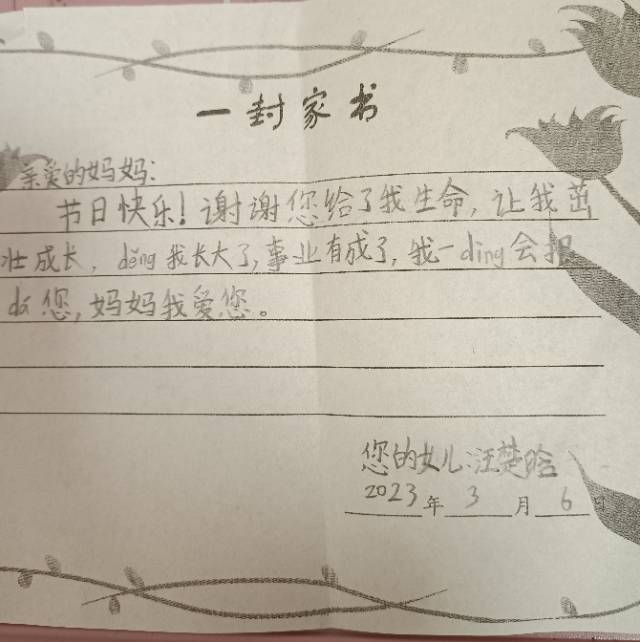 一封家书
亲爱的妈妈:
节日快乐!谢谢您给了我生命,让我茁
壮成长,děng我长大了,事业有成了,我一dìng会报
dá您,妈妈我爱您。
您的女儿:汪楚晗
2023年3月6日